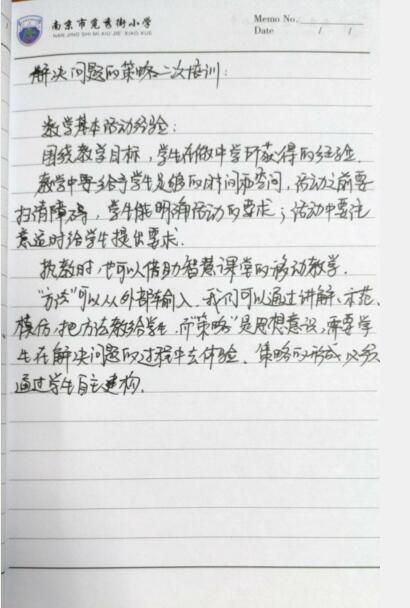 南京市觅秀街小学
NAN JING SHI MI XIU JIE XIAO XUE
Memo No.
Date / /
解决问题的策略二次培训:
数学基本活动经验:
围绕教学目标,学生在做中学所获得的经验.
教学中要给予学生足够的时间和空间,活动之前要
扫清障碍,学生能明确活动的要求;活动中要注
意适时给学生提出要求.
执教时,也可以借助智慧课堂的移动教学.
“方法”可以从外部输入,我们可以通过讲解、示范、
模仿,把方法教给学生,而“策略”是思想意识,需要学
生在解决问题的过程中去体验.策略的形成必须
通过学生自主建构.